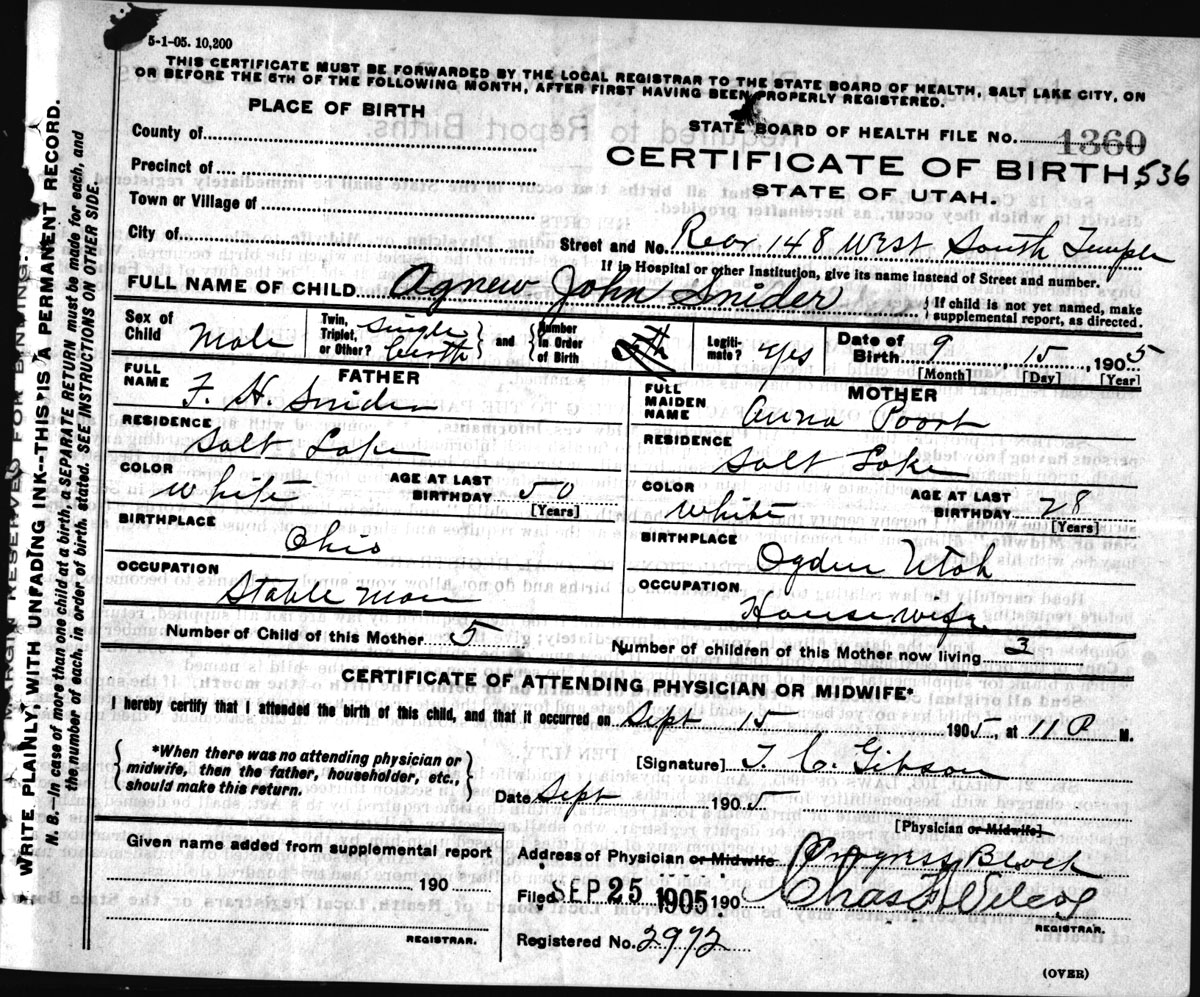 5-1-05. 10,200
THIS CERTIFICATE MUST BE FORWARDED BY THE LOCAL REGISTRAR TO THE STATE BOARD OF HEALTH, SALT LAKE CITY, ON
OR BEFORE THE 5TH OF THE FOLLOWING MONTH, AFTER FIRST HAVING BEEN PROPERLY REGISTERED.
PLACE OF BIRTH
STATE BOARD OF HEALTH FILE NO. 1360
County of
CERTIFICATE OF BIRTH 536
Precinct of
STATE OF UTAH.
Town or Village of
City of
Street and No. Rear 148 West South Temple
If in Hospital or other Institution, give its name instead of Street and number.
FULL NAME OF CHILD Agnew John Snider
If child is not yet named, make supplemental report, as directed.
Sex of Child Male
Twin, Triplet, or Other? single birth and Number in Order of Birth 5th
Legitimate? yes
Date of Birth 9 15, 1905
[Month] [Day] [Year]
FATHER
FULL NAME F. H. Snider
RESIDENCE Salt Lake
COLOR White AGE AT LAST BIRTHDAY 50 [Years]
BIRTHPLACE Ohio
OCCUPATION Stable Man
MOTHER
FULL MAIDEN NAME Anna Poort
RESIDENCE Salt Lake
COLOR White AGE AT LAST BIRTHDAY 28 [Years]
BIRTHPLACE Ogden Utah
OCCUPATION Housewife
Number of Child of this Mother 5 Number of children of this Mother now living 3
CERTIFICATE OF ATTENDING PHYSICIAN OR MIDWIFE*
I hereby certify that I attended the birth of this child, and that it occurred on Sept 15 1905, at 11 P M.
*When there was no attending physician or
midwife, then the father, householder, etc.,
should make this return.
[Signature] T. C. Gibson
Date Sept 1905
[Physician or Midwife]
Given name added from supplemental report
190
REGISTRAR.
Address of Physician or Midwife Progress Block
Filed SEP 25 1905 190 Chas F Wilcox
REGISTRAR.
Registered No. 2972
(OVER)
MARGIN RESERVED FOR BINDING.
WRITE PLAINLY, WITH UNFADING INK--THIS IS A PERMANENT RECORD.
N. B.--In case of more than one child at a birth, a SEPARATE RETURN must be made for each, and
the number of each, in order of birth, stated. SEE INSTRUCTIONS ON OTHER SIDE.